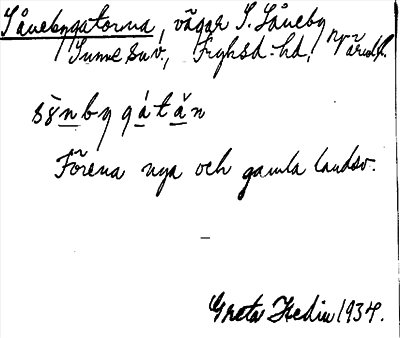 Sånebygatorna, vägar S. Såneby
Sunne sn., Fryksd. hd, Värml.
Förena nya och gamla landsv.
Greta Hedin 1934.